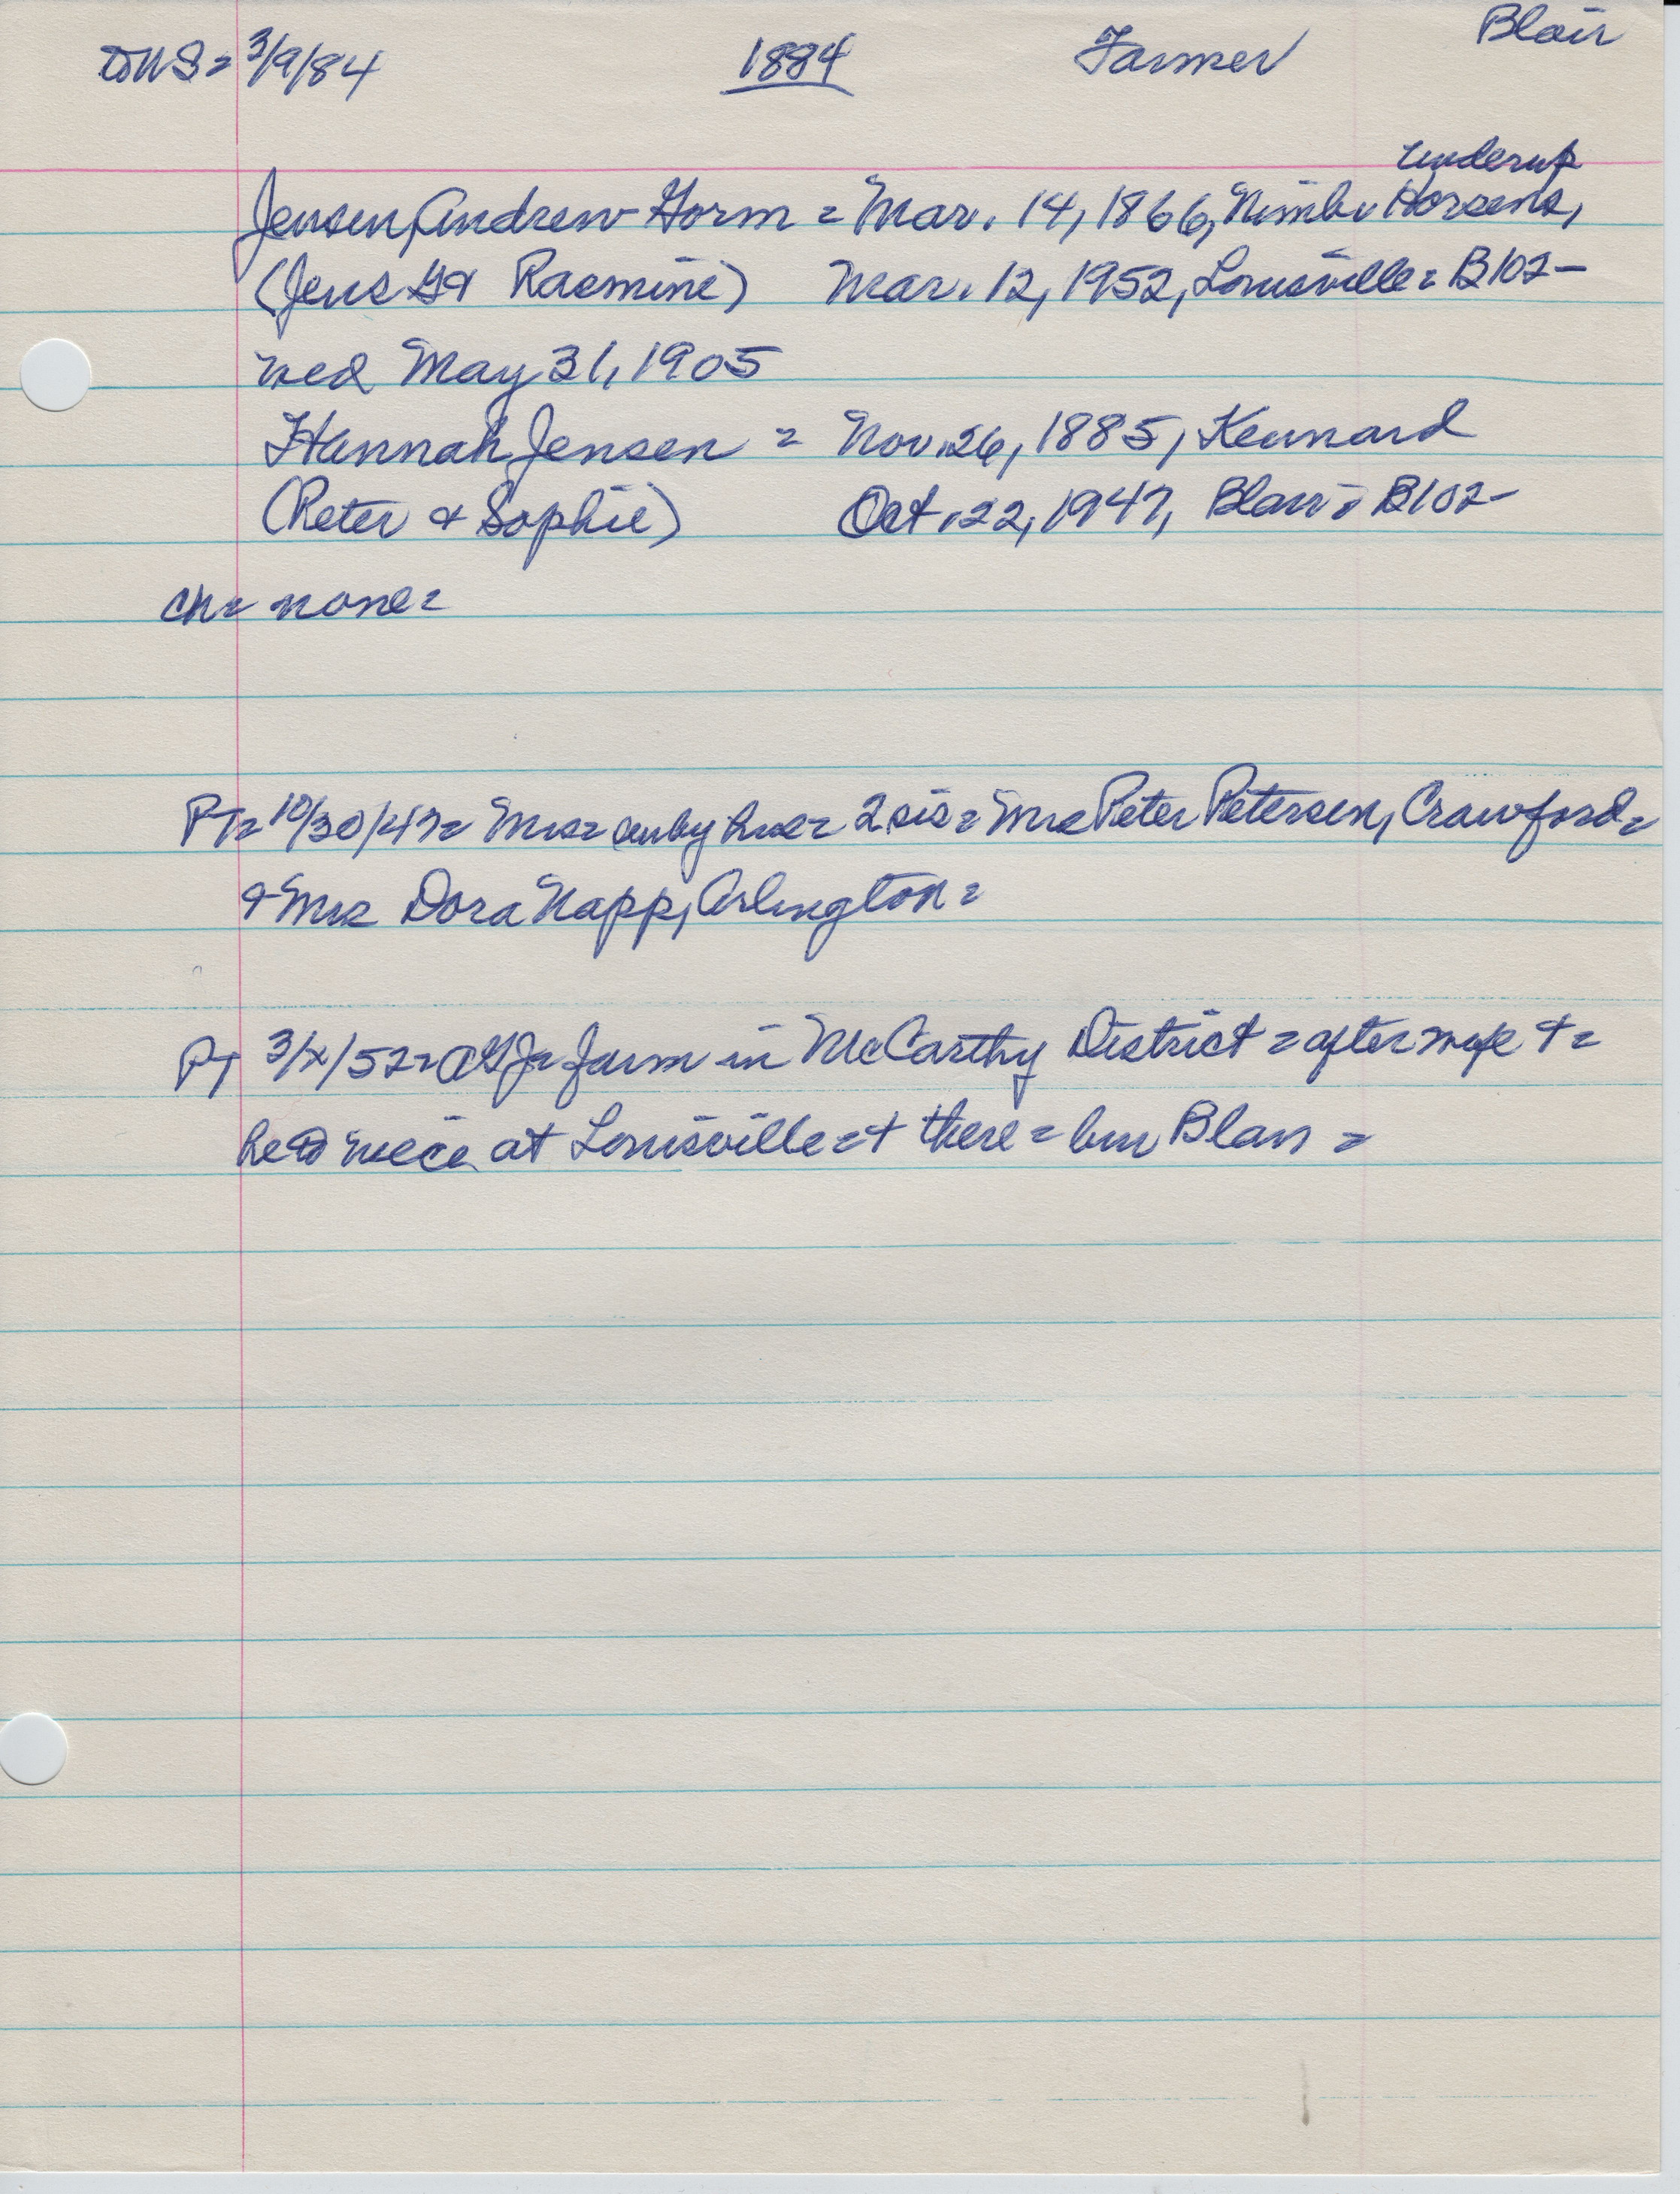 DWS = 3/9/84 1884 Farmer Blair
Underup
Jensen, Andrew Gorm = Mar. 14, 1866, Nimb. Horsens,
(Jens G & Rasmine) Mar. 12, 1952, Louisville = B102-
wed May 31, 1905
Hannah Jensen = Nov. 26, 1885, Kennard
(Peter & Sophie) Oct. 22, 1947, Blair = B102-
ch = none =
PT = 10/30/47 = Mrs = sur by hus = 2 sis = Mrs Peter Petersen, Crawford =
& Mrs Dora Napp, Arlington =
PT 3/x/52 = AGJ = farm in McCarthy District = after wife + =
he to niece at Louisville = + there = bur Blair =